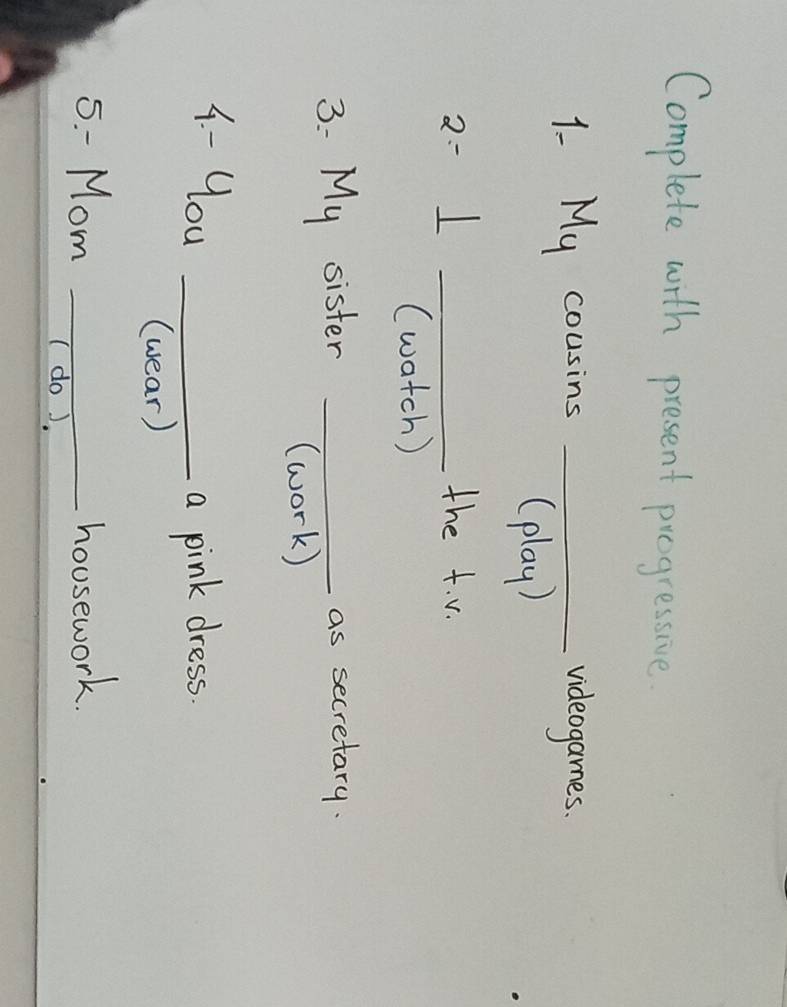 Complete with present progressive.
1.- My cousins ________ videogames.
(play)
2.- I ________ the t.v.
(watch)
3.- My sister ________ as secretary.
(work)
4.- You ________ a pink dress.
(wear)
5.- Mom ________ housework.
(do)